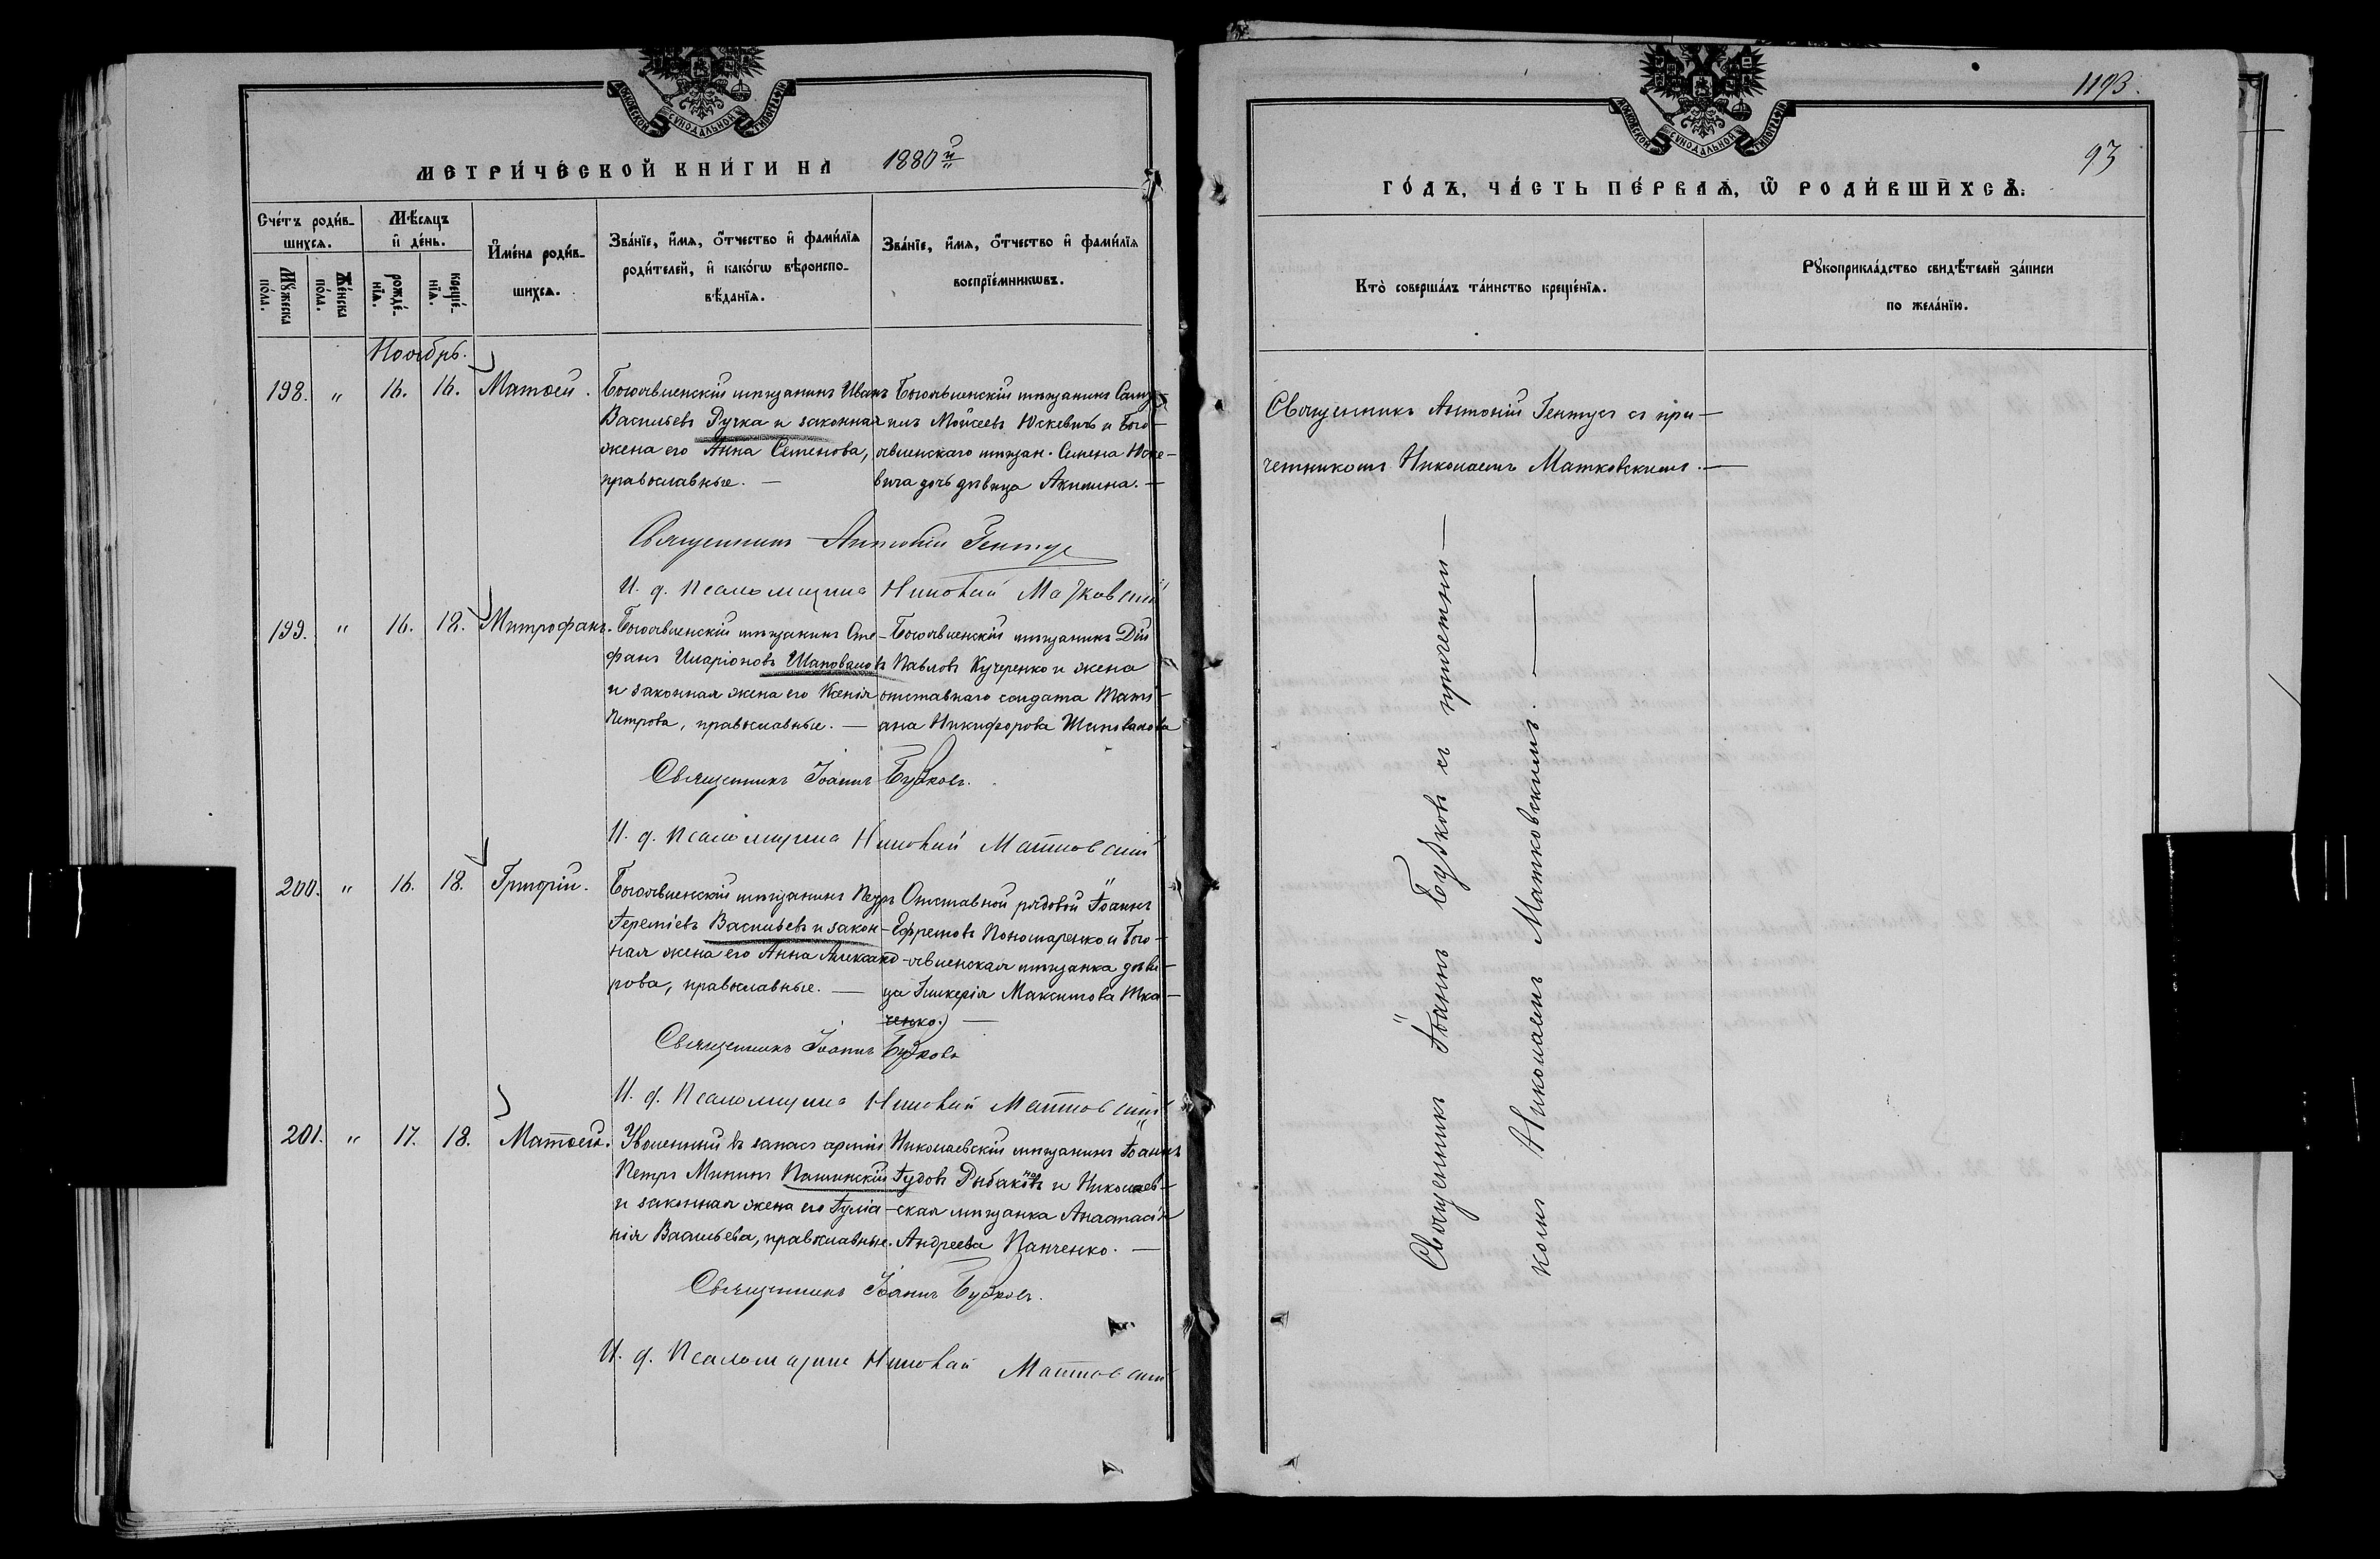 МОСКОВСКОЙ СѴНОДАЛЬНОЙ ТИПОГРАФІИ
МЕТРИ́ЧЕСКОЙ КНИ́ГИ НА 1880й
Сче́тъ роди́в-
шихсѧ.
Мѣ́сяцъ
и҆ де́нь.
И҆мена̀ роди́в-
шихсѧ.
Зва́нїе, и҆́мѧ, ѻ҆́тчество и҆ фами́лїѧ
роди́телей, и҆ како́гѡ вѣроиспо-
вѣ́данїѧ.
Зва́нїе, и҆́мѧ, ѻ҆́тчество и҆ фами́лїѧ
воспрїе́мникѡвъ.
Мꙋ́жеска
по́ла.
Же́нска
по́ла.
рожде́-
нїѧ.
креще́-
нїѧ.
Ноябрь.
198. " 16. 16. Матѳей.
Богоявленскій мѣщанинъ Иванъ
Васильевъ Ручка и законная
жена его Анна Семенова,
православные. —
Богоявленскій мѣщанинъ Саму-
илъ Мойсеевъ Юскевичъ и Бого-
явленскаго мѣщан. Семена Юске-
вича дочь дѣвица Акилина. —
Священникъ Антоній Гентус
И. д. Псаломщика Николай Матковскій
199. " 16. 18. Митрофанъ.
Богоявленскій мѣщанинъ Сте-
фанъ Иларіоновъ Шаповаловъ
и законная жена его Ксенія
Петрова, православные. —
Богоявленскій мѣщанинъ Дій
Павловъ Кучеренко и жена
отставнаго солдата Тати-
ана Никифорова Шаповалова
Священникъ Іоаннъ Будковъ.
И. д. Псаломщика Николай Матковскій
200. " 16. 18. Григорій.
Богоявленскій мѣщанинъ Петръ
Іереміевъ Васильевъ и закон-
ная жена его Анна Александ-
рова, православные. —
Отставной рядовой Іоаннъ
Ефремовъ Пономаренко и Бого-
явленская мѣщанка дѣви-
ца Гликерія Максимова Тка-
ченко. —
Священникъ Іоаннъ Будковъ
И. д. Псаломщика Николай Матковскій
201. " 17. 18. Матѳей.
Уволенный въ запасъ арміи
Петръ Мининъ Пашинскій
и законная жена его Іуліа-
нія Васильева, православные.
Николаевскій мѣщанинъ Іоаннъ
Іудовъ Рыбаковъ и Николаев-
ская мѣщанка Анастасія
Андреева Панченко. —
Священникъ Іоаннъ Будковъ.
И. д. Псаломщика Николай Матковскій
МОСКОВСКОЙ СѴНОДАЛЬНОЙ ТИПОГРАФІИ
1193.
93
ГО́ДЪ, ЧА́СТЬ ПЕ́РВАѦ, Ѡ҆ РОДИ́ВШИХСѦ.
Кто̀ соверша́лъ та́инство креще́нїѧ.
Рꙋкоприкла́дство свидѣ́телей за́писи
по жела́нїю.
Священникъ Антоній Гентусъ съ при-
четникомъ Николаемъ Матковскимъ. —
Священникъ Іоаннъ Будковъ съ причетни-
комъ Николаемъ Матковскимъ. —